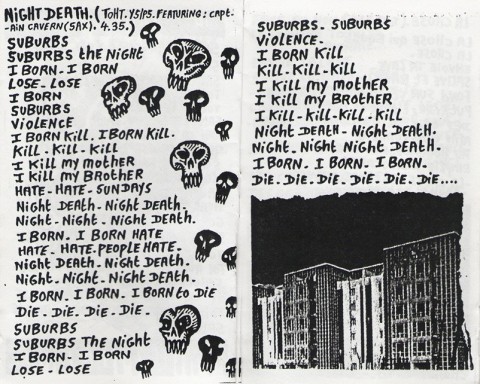 NiGHT DEATH. (TOHT. Y5/P5. FEATURING: CAPT-
-AIN CAVERN (SAX). 4.35.)
SUBURBS
SUBURBS the NiGHT
I BORN - I BORN
LOSE - LOSE
I BORN
SUBURBS
VIOLENCE
I BORN KILL. I BORN KILL.
KILL - KILL - KILL
I KILL my moTHER
I KILL my BROTHER
HATE - HATE - SUNDAYS
NiGHT DEATH - NiGHT DEATH.
NiGHT - NiGHT - NiGHT DEATH.
I BORN. I BORN HATE
HATE - HATE. PEOPLE HATE -
NiGHT DEATH - NiGHT DEATH.
NiGHT. NiGHT - NiGHT DEATH.
I BORN. I BORN. I BORN to DIE
DIE. DIE. DIE. DIE.
SUBURBS
SUBURBS THE NiGHT
I BORN - I BORN
LOSE - LOSE
SUBURBS. SUBURBS
VIOLENCE.
I BORN KILL
KILL - KILL - KILL
I KILL my moTHER
I KILL my BROTHER
I KILL - KILL - KILL - KILL
NiGHT DEATH - NiGHT DEATH.
NiGHT. NiGHT NiGHT DEATH.
I BORN. I BORN. I BORN.
DIE. DIE. DIE. DIE. DIE. DIE....